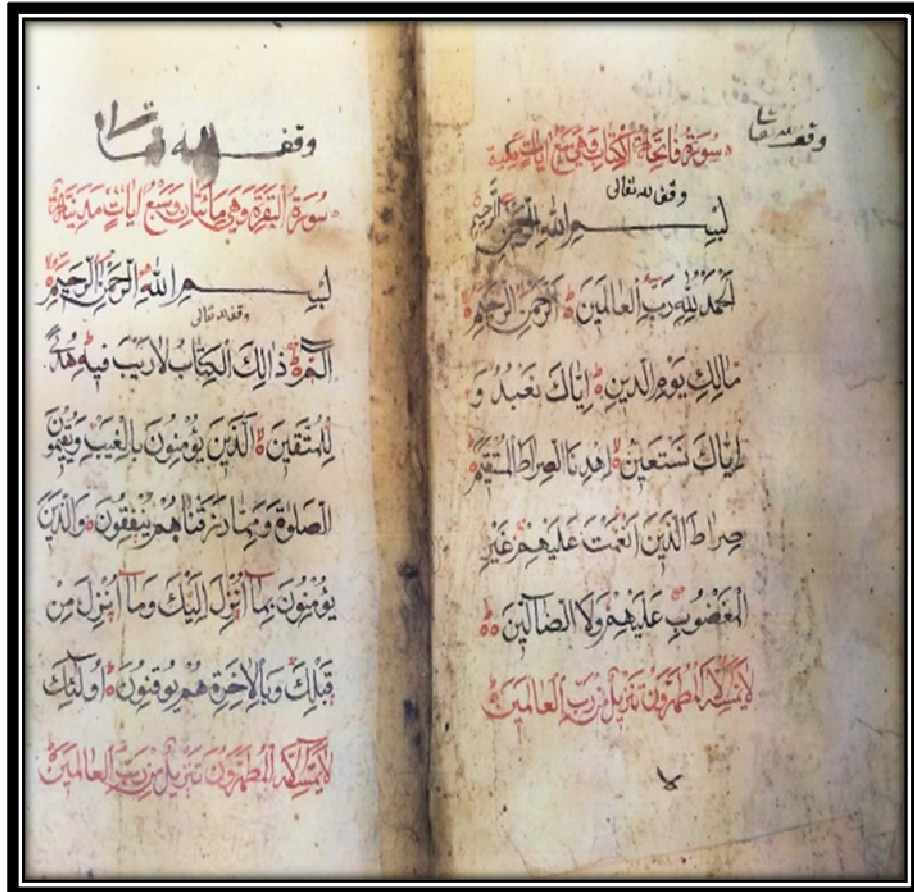 وقف لله تعالى
سورة فاتحة الكتاب وهي سبع ايات مكية
وقف لله تعالى
بسم الله الرحمن الرحيم
الحمد لله رب العالمين الرحمن الرحيم
مالك يوم الدين اياك نعبد و
اياك نستعين اهدنا الصراط المستقيم
صراط الذين انعمت عليهم غير
المغضوب عليهم ولا الضالين
لا يمسه الا المطهرون تنزيل من رب العالمين
وقف لله تعالى
سورة البقرة وهي مائتان وسبع ايات مدينة
بسم الله الرحمن الرحيم
وقف لله تعالى
الم ذالك الكتاب لا ريب فيه هدى
للمتقين الذين يؤمنون بالغيب ويقيمون
الصلوة ومما رزقناهم ينفقون والذين
يؤمنون بما انزل اليك وما انزل من
قبلك وبالاخرة هم يوقنون اولئك
لا يمسه الا المطهرون تنزيل من رب العالمين